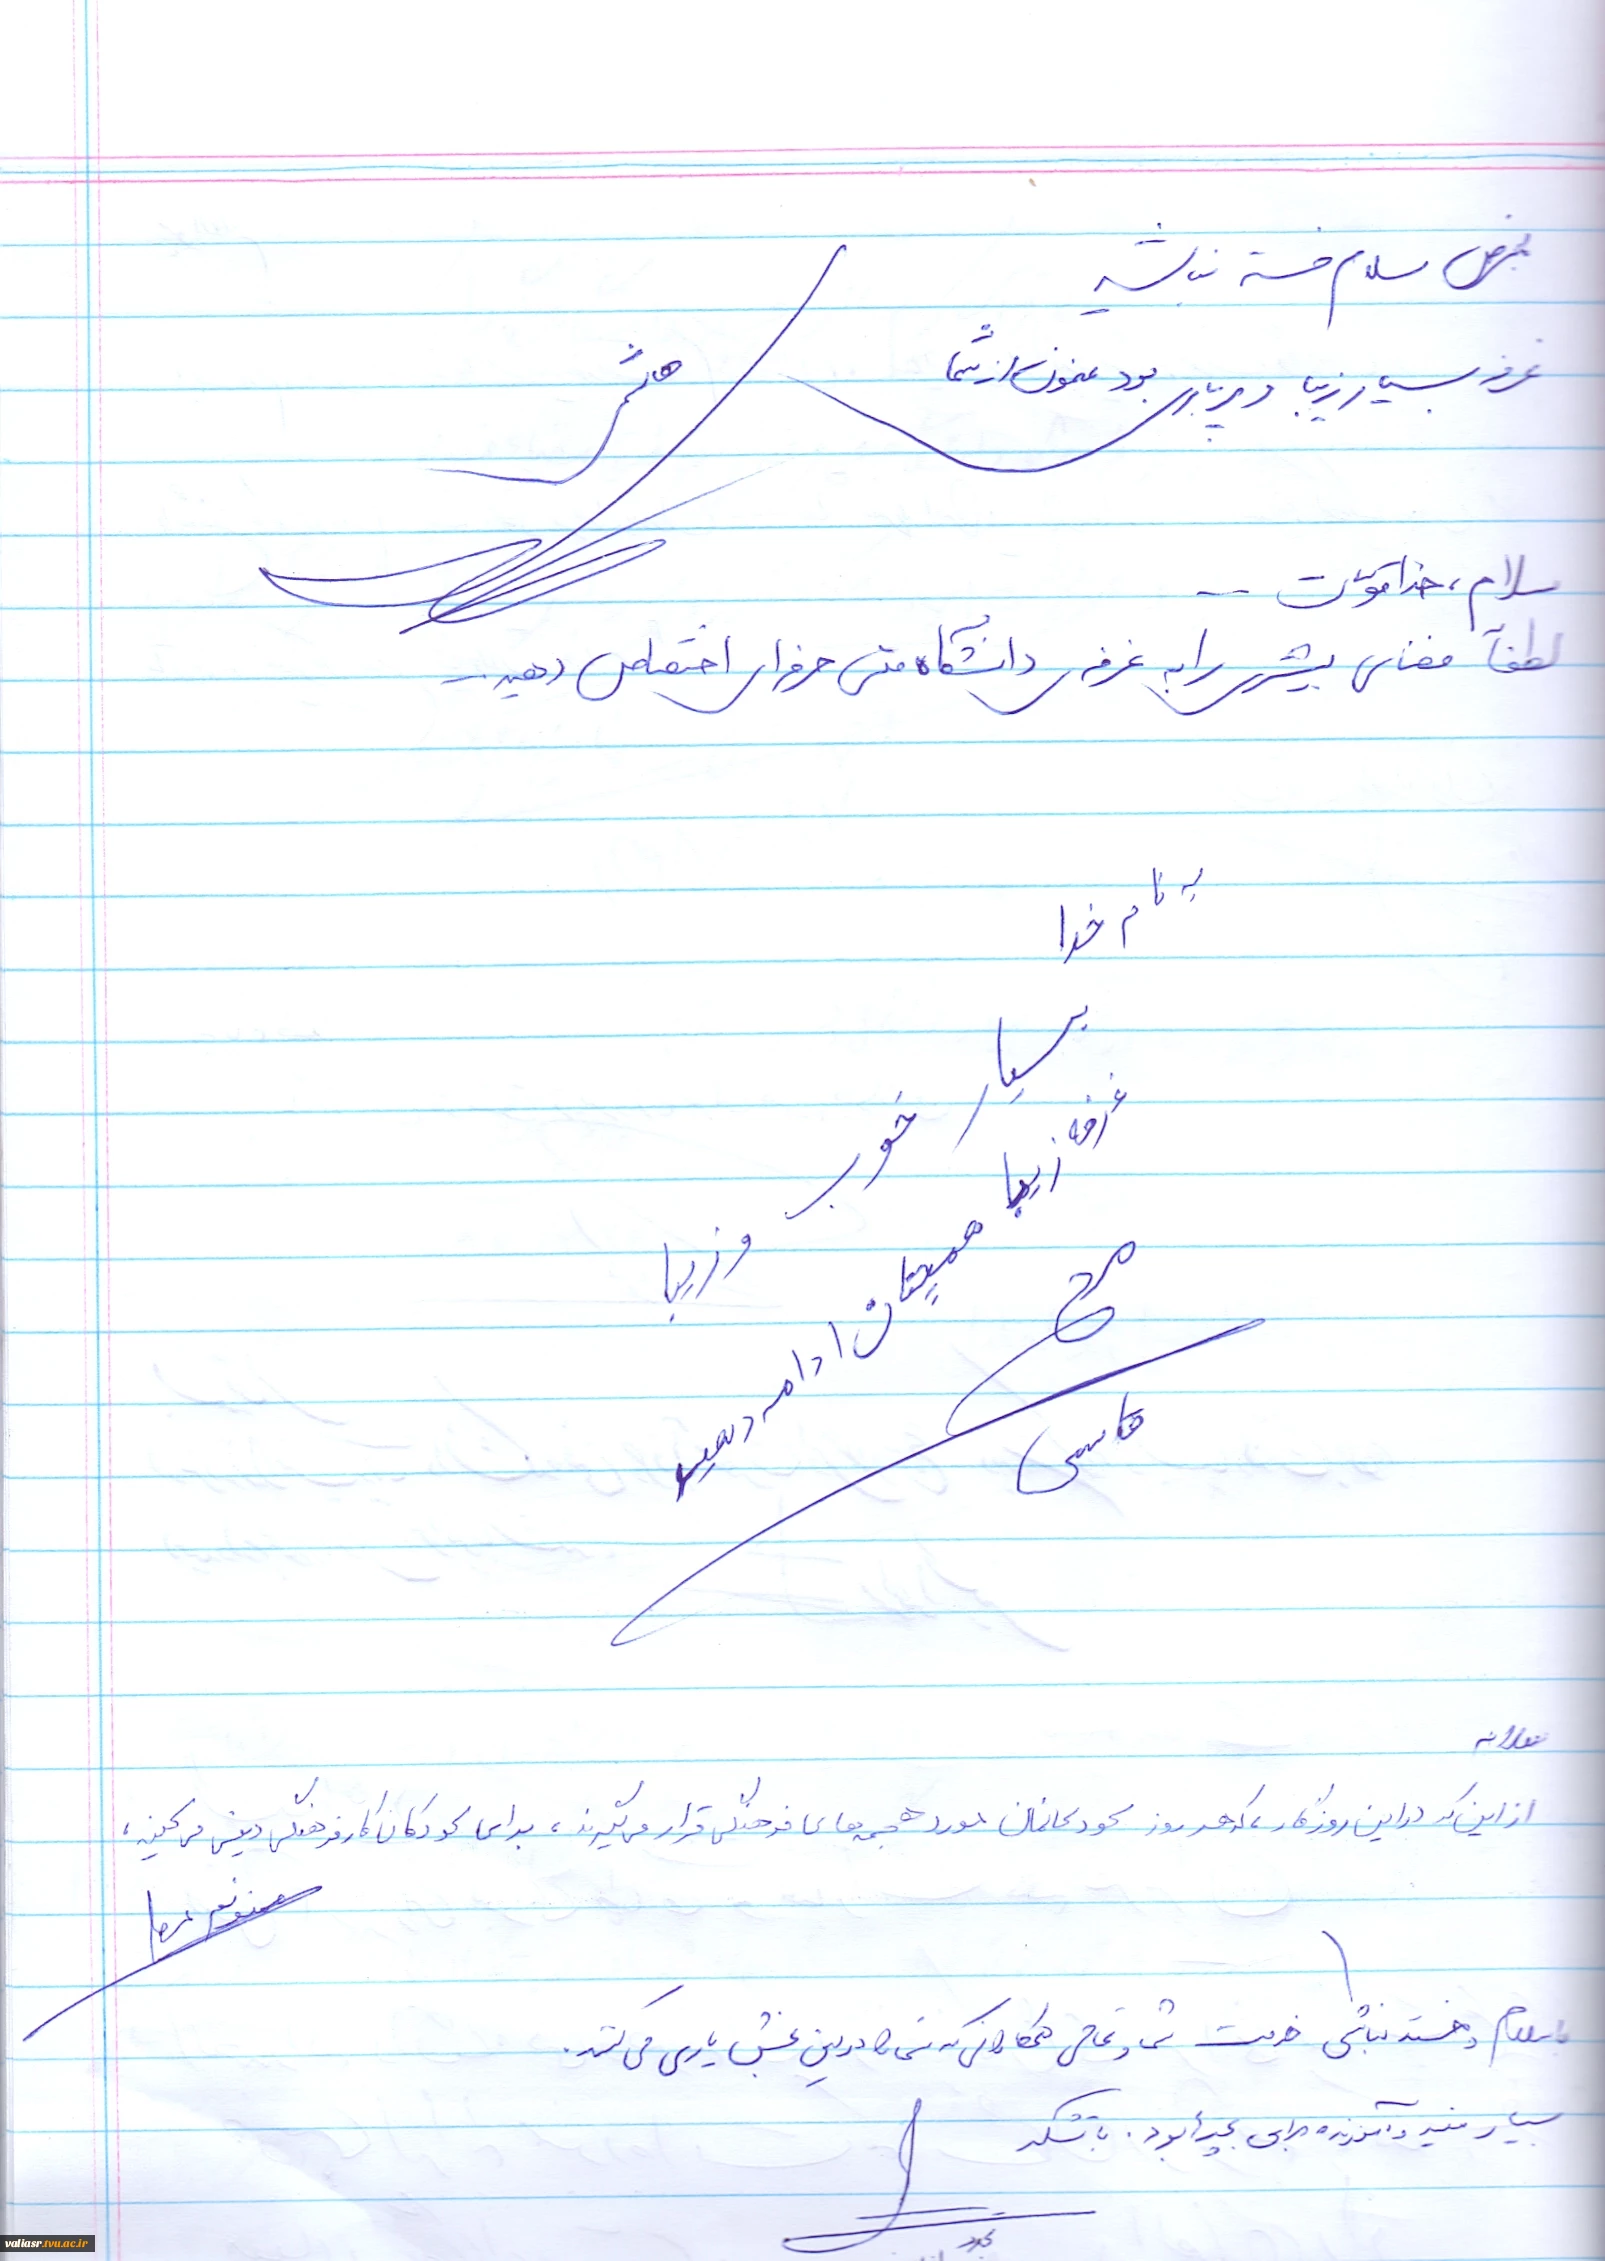 بعرض سلام خسته نباشید
غرفه بسیار زیبا و پرباری بود ممنون از شما
سلام، خدا قوت ...
لطفاً فضای بیشتری را به غرفه‌ی دانشگاه فنی حرفه‌ای اختصاص دهید...
به نام خدا
بسیار خوب و زیبا
غرفه زیبا همچنان ادامه دهید
قاسمی
از این که در این روزگار، که هر روز کودکانمان مورد هجمه‌های فرهنگی قرار می‌گیرند، برای کودکان کار فرهنگی دینی می‌کنید،
ممنونم
با سلام و خسته نباشی خدمت شما و تمامی همکارانی که شما را در این بخش یاری می‌کنند.
بسیار مفید و آموزنده برای بچه‌ها بود. با تشکر
valiasr.tvu.ac.ir